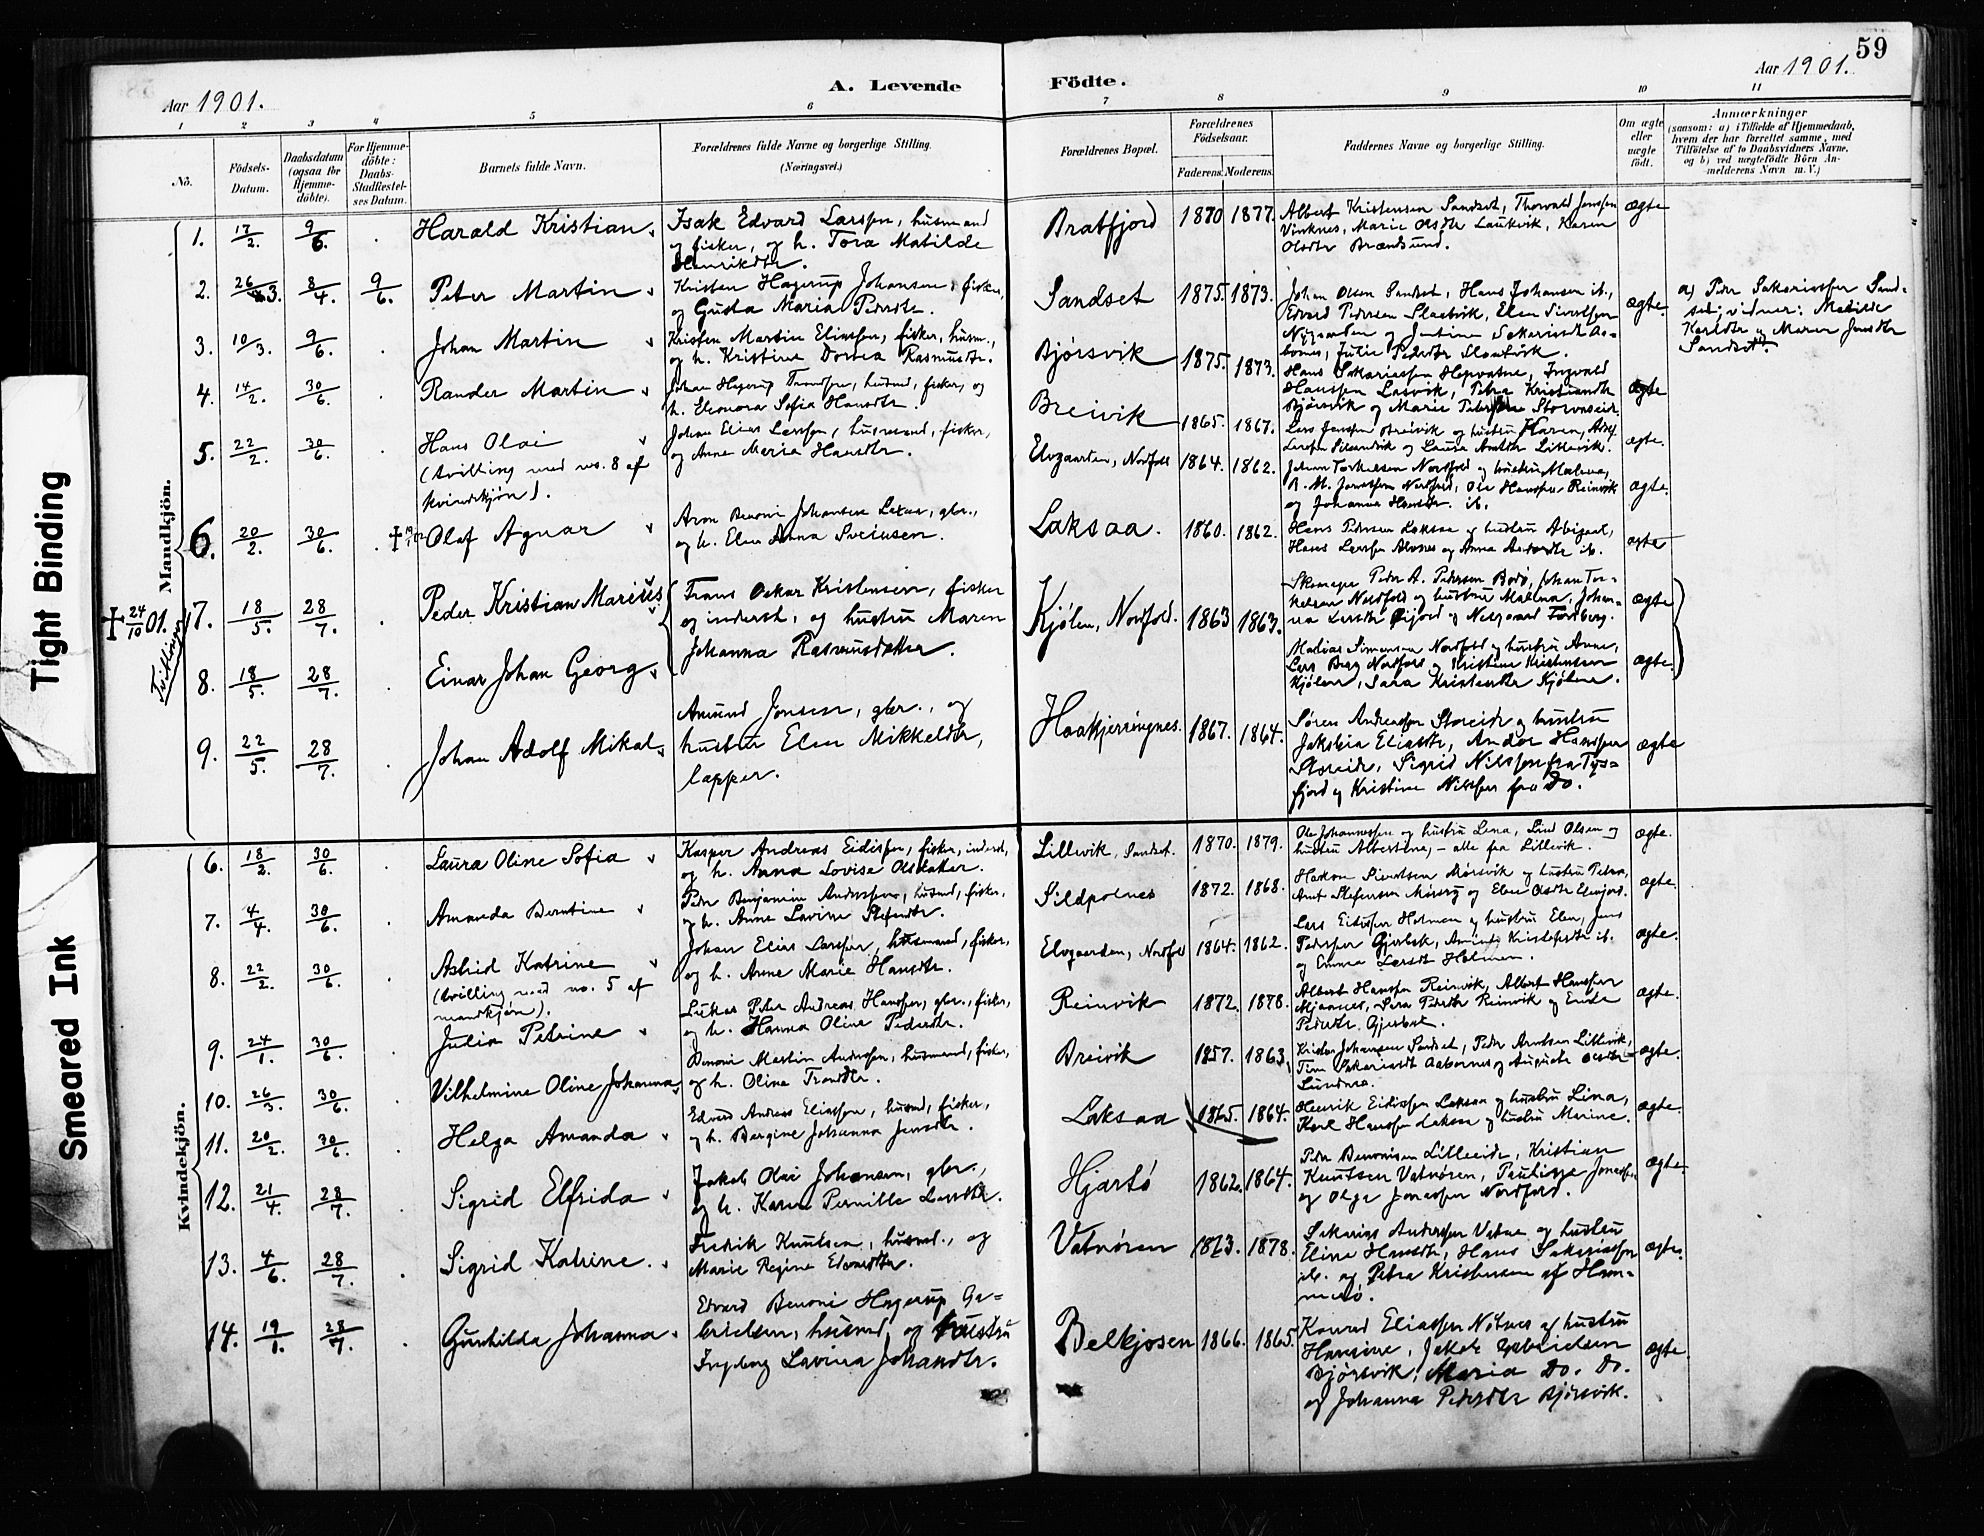 59
Aar 1901.
A. Levende Födte.
Aar 1901.
1 2 3 4 5 6 7 8 9 10 11
No.
Födsels-Datum.
Daabsdatum (ogsaa for Hjemme-döbte).
For Hjemme-döbte: Daabs-Stadfæstel-ses Datum.
Barnets fulde Navn.
Forældrenes fulde Navne og borgerlige Stilling.
(Næringsvei.)
Forældrenes Bopæl.
Forældrenes Födselsaar.
Faderens. Moderens.
Faddernes Navne og borgerlige Stilling.
Om ægte eller uægte födt.
Anmærkninger
(saasom: a) i Tilfælde af Hjemmedaab,
hvem der har forrettet samme, med
Tilföielse af to Daabsvidners Navne,
og b) ved uægtefödte Börn An-
melderens Navn m. V.)
Tight Binding
Smeared Ink
Mandkjön.
1. 17/2. 9/6. Harald Kristian
Isak Edvard Larssen, husmand
og fisker, og h. Tora Matilde
Henrikdtr.
Bratfjord 1870 1877.
Albert Kristensen Sandset, Thorvald Jenssen
Vinknes, Marie Olsdtr Laukvik, Karen
Olsdtr Brændsund.
ægte
2. 26/3. 8/4. 9/6. Peter Martin
Kristen Hagerup Johansen, fisker,
og Gusta Maria Pedersdtr.
Sandset 1875. 1873.
Johan Olsen Sandset, Hans Johansen ib.,
Edvard Pedersen Slaatvik, Elen Sivertsen
Nygaarden og Jentine Sakariasdtr Aa-
bones, Julie Pedersdtr Slaatvik.
ægte
a) Peder Sakariassen Sand-
set; vidner: Matilde
Karlsdtr og Maren Jensdtr
Sandset.
3. 10/3. 9/6. Johan Martin
Kristen Martin Eliassen, fisker, husm.,
og h. Kristine Dortea Rasmusdtr.
Bjørsvik 1875. 1873.
Hans Sakariassen Hopvatne, Ingvald
Hanssen Laxvik, Petra Kristiandtr
Bjørsvik og Marie Pedersdtr Storvaseid
ægte
4. 14/2. 30/6. Rander Martin
Johan Hagerup Trondsen, husmd, fisker, og
h. Eleonora Sofia Hansdtr.
Breivik 1865. 1867.
Lars Jenssen Breivik og hustru Karen, Adolf
Larssen og Laura Lillevik.
ægte.
5. 22/2. 30/6. Hans Olai
(tvilling med no. 8 af
kvindekjøn).
Johan Elias Larssen, husmand, fisker,
og Anne Maria Hansdtr.
Elvgaarden, Nordfold 1864. 1862.
Johan Torkelsen Nordfold og hustru Malena,
R. M. Jonassen Nordfold, Ole Hanssen Reinvik
og Johanna Hansdtr. ib.
ægte.
6. 20/2. 30/6. Olaf Agnar
Aron Benoni Johansen Laxaa, gbr.,
og h. Elen Anna Sveinsen.
Laksaa. 1860. 1862.
Hans Pedersen Laksaa og hustru Abigael,
Hans Larssen Alvnes og Anna ib.
ægte
+ 24/10 01. 7. 18/5. 28/7. Peder Kristian Marius
Tvillinger
Frans Oskar Kristensen, fisker
og inderst, og hustru Maren
Johanna Rasmusdatter.
Kjølen, Nordfold. 1863 1863.
Skomager Peder A. Pedersen Bodø, Johan Tor-
kelsen Nordfold og hustru Malena, Johan-
na Larsdtr Øijord og Nordberg.
ægte
8. 18/5. 28/7. Einar Johan Georg
Matias Simonsen Nordfold og hustru Anne,
Lars Berg Nordfold og Kristine Kristensen
Kjølen, Sara Kristensdtr Kjølen.
ægte.
9. 22/5. 28/7. Johan Adolf Mikal
Amund Jonsen, gbr., og
hustru Elen Mikkeldtr,
lapper.
Haakjerringnes. 1867. 1864.
Søren Andreassen Storeide og hustru
Jakobia Eliasdtr, Andor Hanssen
Storeide, Sigrid Nilssen fra Tys-
fjord og Kristine Nilssen fra Do.
ægte
Kvindekjön.
6. 18/2. 30/6. Laura Oline Sofia
Kasper Andreas Eidissen, fisker, inderst,
og h. Anna Lovise Olsdatter.
Lillevik, Sandset. 1870. 1879.
Ole Johannessen og hustru Lena, Lind Olsen og
hustru Albertine, – alle fra Lillevik.
ægte.
7. 4/4. 30/6. Amanda Berntine
Peder Benjamin Anderssen, husmd, fisker,
og h. Anne Lavine Stefensdtr.
Sildpolnes 1872. 1868.
Haakon Bjørsvik og hustru Petra,
Arnt Steffensen og Elen Olsdtr Elvefjord.
ægte.
8. 22/2. 30/6. Astrid Katrine
(tvilling med no. 5 af
mandkjøn).
Johan Elias Larssen, husmand, fisker,
og h. Anne Marie Hansdtr.
Elvgaarden, Nordfold 1864. 1862.
Lars Eidissen Holmen og hustru Elen, Jens
Pederssen Gjerbak, Kristofersdtr ib.
og Emma Larsdtr Holmen.
ægte.
9. 24/1. 30/6. Julia Petrine
Lukas Peter Andreas Hanssen, gbr., fisker,
og h. Hanna Oline Pedersdtr.
Reinvik 1872. 1878.
Albert Hanssen Reinvik, Albert Hanssen
Mjaanes, Lina Pedersdtr Reinvik og
Pedersdtr Gjerbak.
ægte.
10. 26/3. 30/6. Vilhelmine Oline Johanna
Benoni Martin Anderssen, husmand, fisker,
og h. Oline Trondsdtr.
Breivik 1857. 1863.
Kristen Johansen Sandset, Peder Arntsen Lillevik,
Sakariasdtr Aabornes og Augusta Olsdtr
ægte.
11. 20/2. 30/6. Helga Amanda
Edvard Andreas Eliassen, husmd, fisker,
og h. Bergine Johanna Jensdtr.
Laksaa 1865. 1864.
Henrik Eidissen Laksaa og hustru Lina,
Karl Hanssen Laksaa og hustru Marine.
ægte.
12. 21/4. 28/7. Sigrid Elfrida
Jakob Olai Johansen, gbr.,
og h. Karen Pernille Larsdtr.
Hjartø 1862. 1864.
Peder Benonisen Lilleeide, Kristian
Knutsen Vatnøren, Paulissa Jonassen
og Olga Jonassen Nordfold.
ægte
13. 4/6. 28/7. Sigrid Katrine.
Fredrik Knutsen, husmd., og
Marie Regine Edvardtr.
Vatnøren 1873. 1878.
Sakarias Anderssen Vatne og hustru
Elina Hansdtr, Hans Sakariassen
ib. og Petra Kristensen af Ham-
merø.
ægte.
14. 19/1. 28/7. Gunhilda Johanna
Edvard Benoni Hagerup Ga-
brielsen, husmd, og hustru
Ingeborg Lavina Johandtr.
Belkjosen 1866. 1865.
Konrad Eliassen Nøtnes og hustru
Hansine, Jakob Gabrielsen
Bjørsvik, Maria Do. Do.
og Johanna Pedersdtr Bjørsvik.
ægte